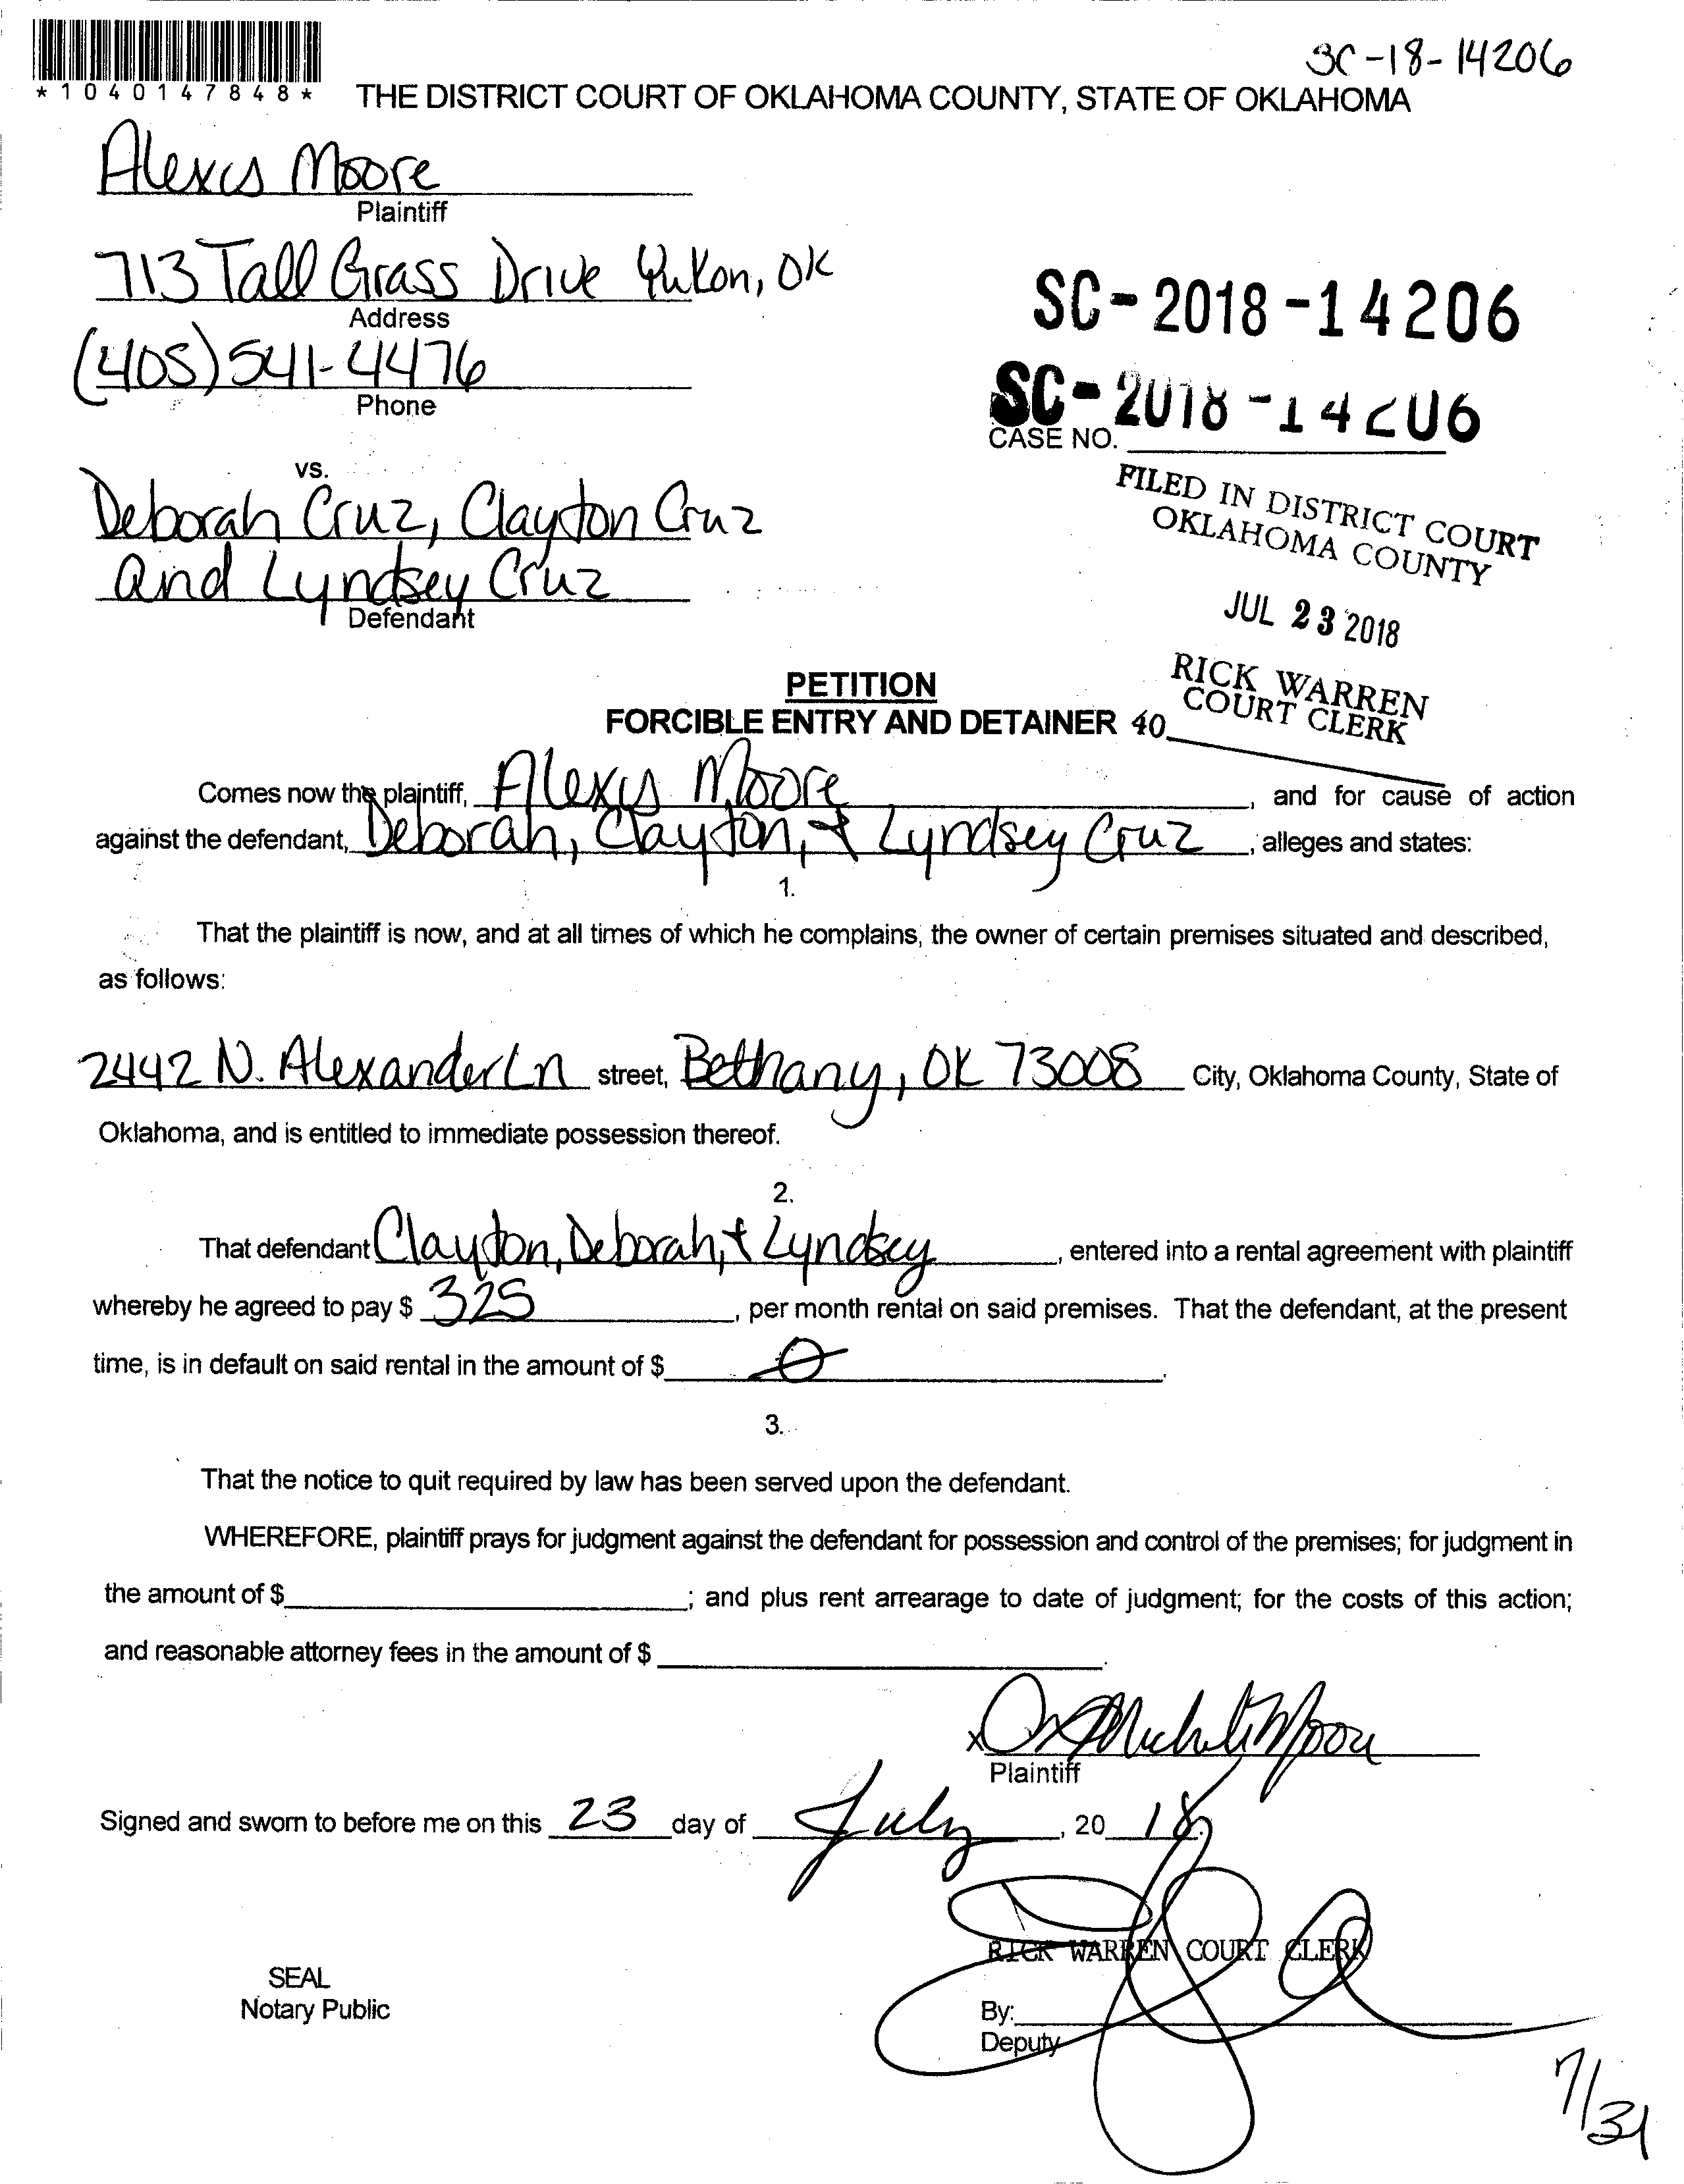 SC-18-14206
*1040147848*
THE DISTRICT COURT OF OKLAHOMA COUNTY, STATE OF OKLAHOMA
Alexis Moore
Plaintiff
713 Tall Grass Drive Yukon, OK
Address
(405) 541-4476
Phone
SC-2018-14206
SC-2018-14206
CASE NO.
vs.
Deborah Cruz, Clayton Cruz
and Lyndsey Cruz
Defendant
FILED IN DISTRICT COURT
OKLAHOMA COUNTY
JUL 23 2018
RICK WARREN
COURT CLERK
PETITION
FORCIBLE ENTRY AND DETAINER 40
Comes now the plaintiff, Alexis Moore, and for cause of action
against the defendant, Deborah, Clayton, + Lyndsey Cruz, alleges and states:
1.
That the plaintiff is now, and at all times of which he complains, the owner of certain premises situated and described,
as follows:
2442 N. Alexander Ln street, Bethany, OK 73008 City, Oklahoma County, State of
Oklahoma, and is entitled to immediate possession thereof.
2.
That defendant Clayton, Deborah, + Lyndsey, entered into a rental agreement with plaintiff
whereby he agreed to pay $ 325, per month rental on said premises. That the defendant, at the present
time, is in default on said rental in the amount of $ 0.
3.
That the notice to quit required by law has been served upon the defendant.
WHEREFORE, plaintiff prays for judgment against the defendant for possession and control of the premises; for judgment in
the amount of $ ; and plus rent arrearage to date of judgment; for the costs of this action;
and reasonable attorney fees in the amount of $ .
x Moore
Plaintiff
Signed and sworn to before me on this 23 day of July, 2018.
RICK WARREN COURT CLERK
SEAL
Notary Public
By:
Deputy
7/31